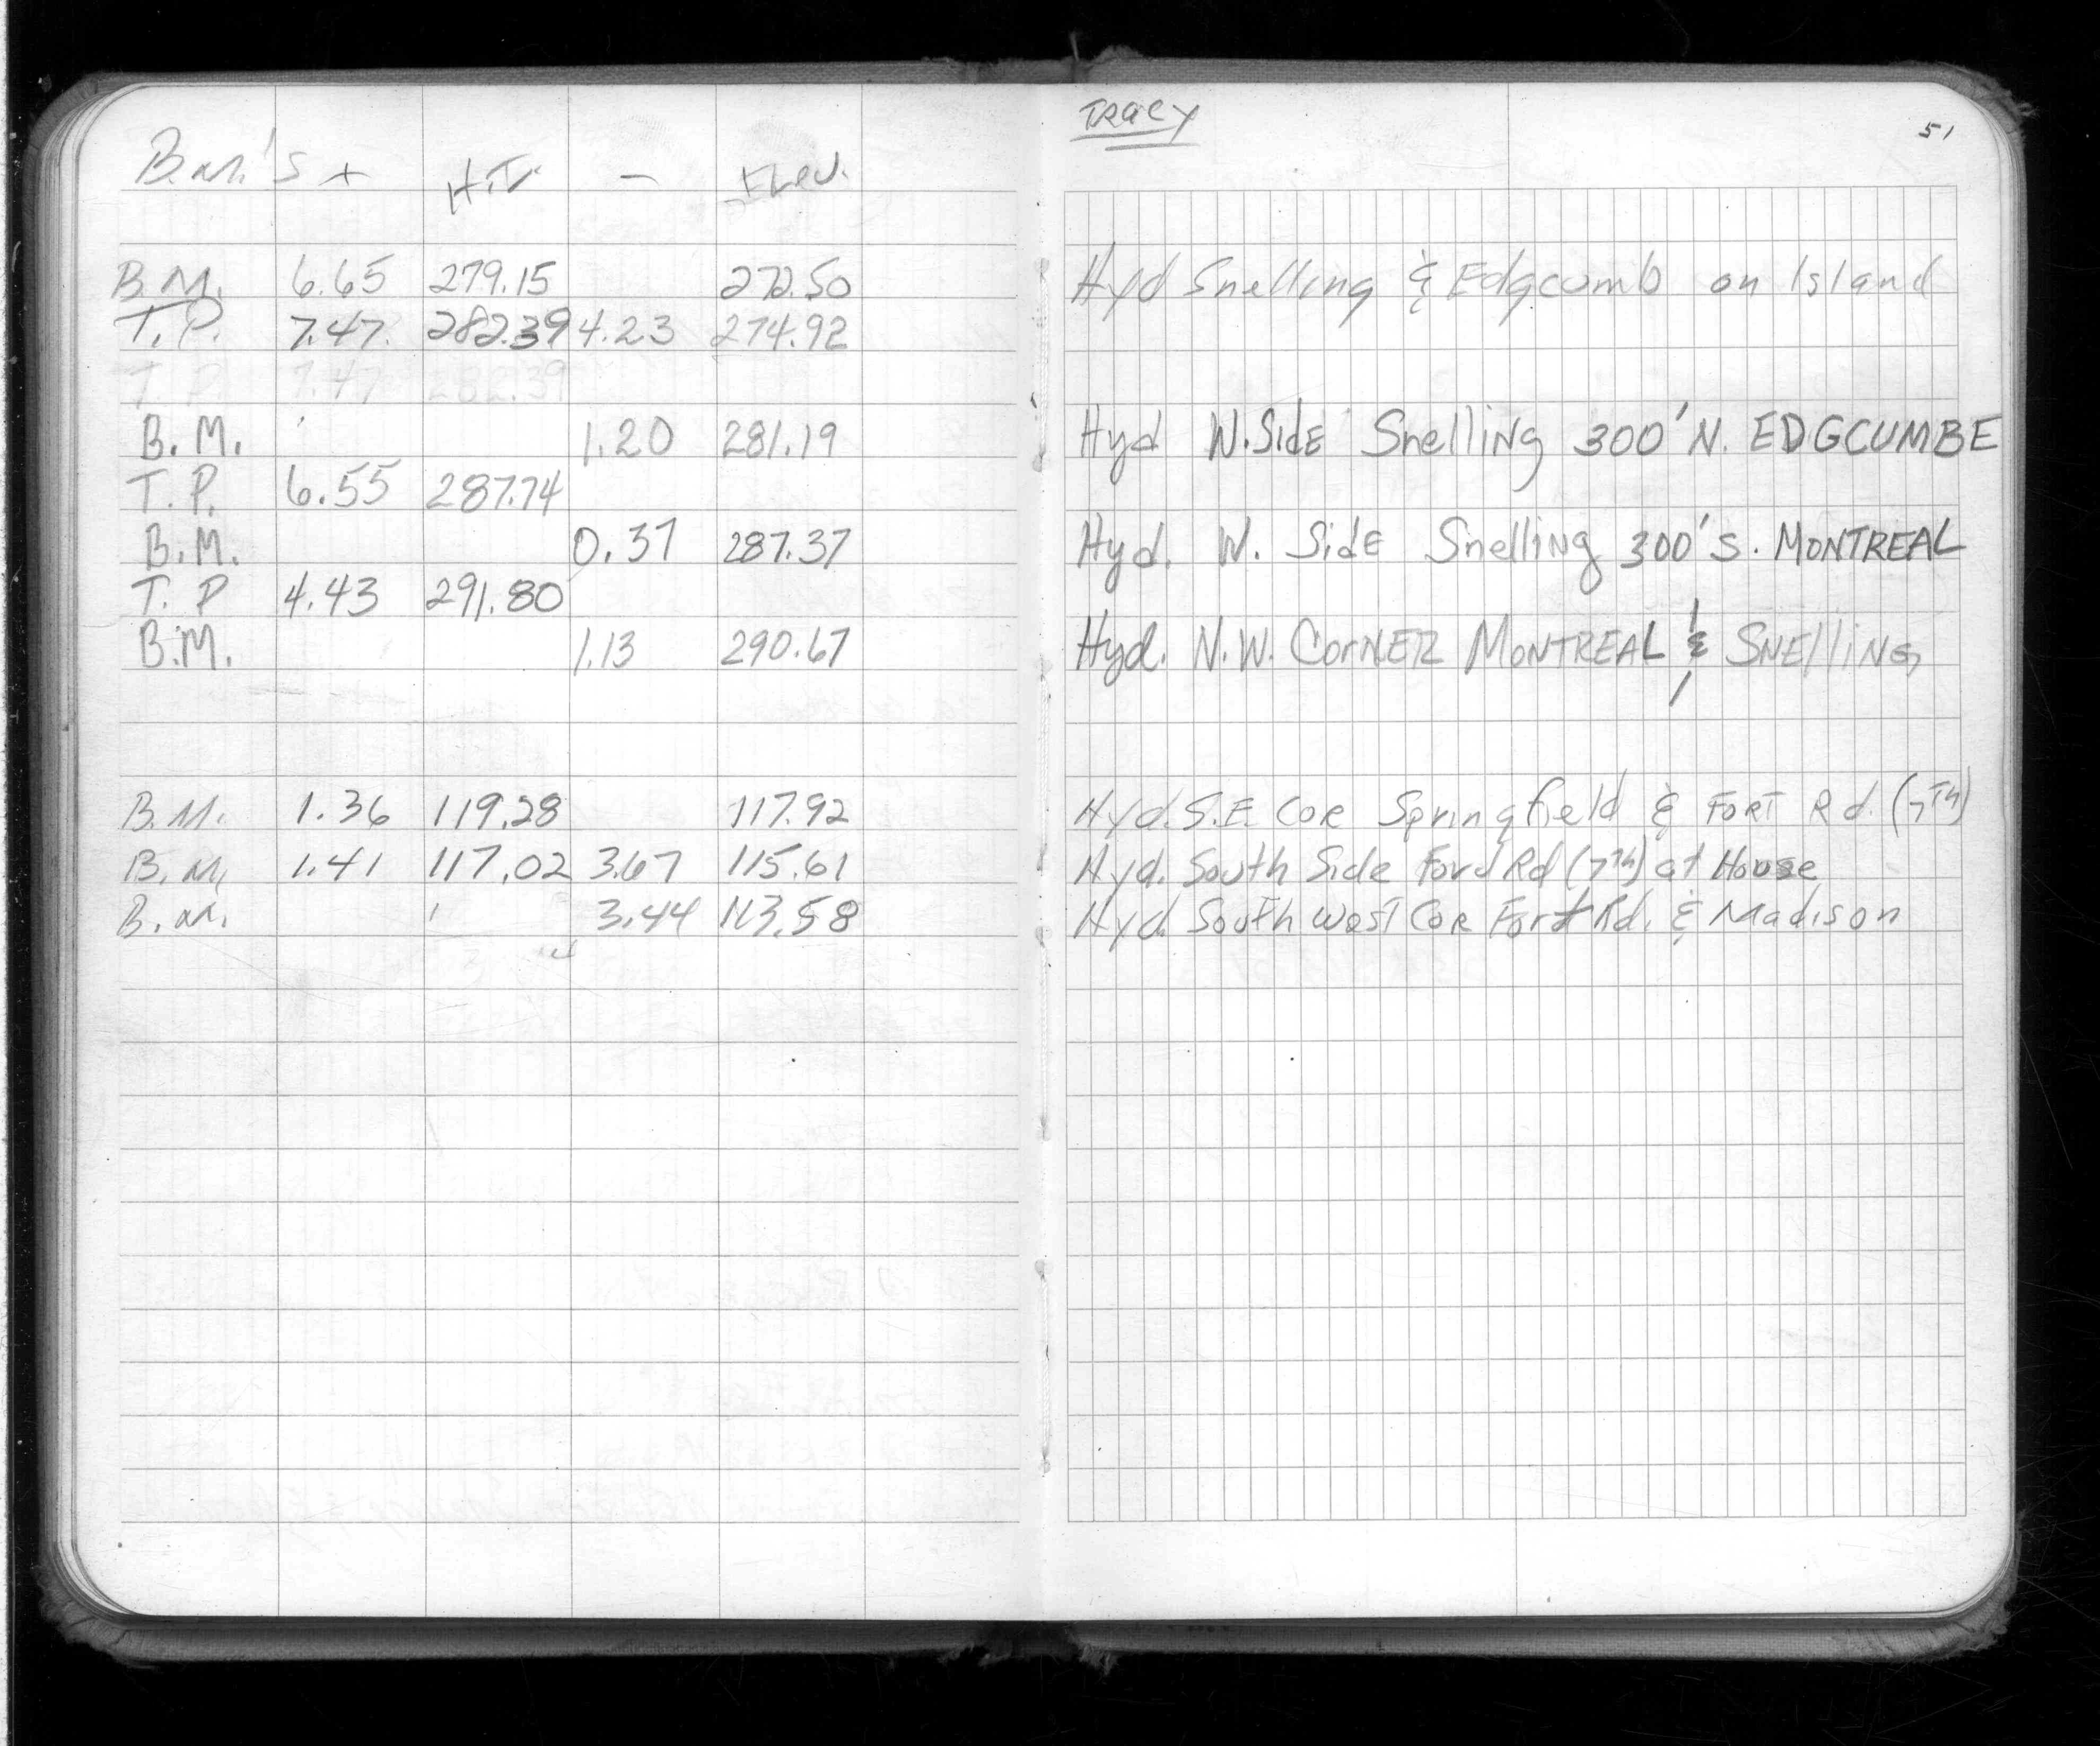 B.M.'s + H.I. - Elev.
B.M. 6.65 279.15 272.50
T.P. 7.47 282.39 4.23 274.92
T.P. 7.47 282.39
B.M. 1.20 281.19
T.P. 6.55 287.74
B.M. 0.37 287.37
T.P 4.43 291.80
B.M. 1.13 290.67
B.M. 1.36 119.28 117.92
B.M. 1.41 117.02 3.67 115.61
B.M. 3.44 113.58
TRACY
51
Hyd Snelling & Edgcumb on Island
Hyd W. Side Snelling 300' N. EDGCUMBE
Hyd. W. Side Snelling 300' S. MONTREAL
Hyd. N.W. CORNER MONTREAL & SNELLING
Hyd. S.E. Cor Springfield & FORT Rd. (7th)
Hyd. South Side Ford Rd (7th) at House
Hyd. South West Cor Fort Rd. & Madison